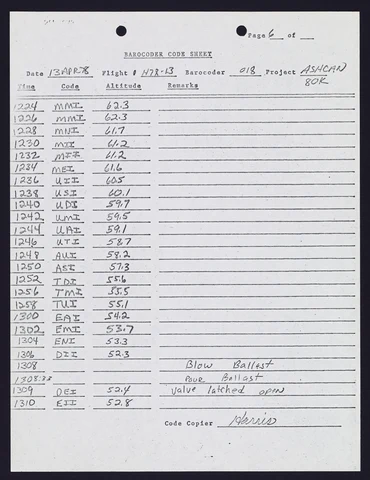 Page 6 of
BAROCODER CODE SHEET
Date 13 APR 78 Flight # H78-13 Barocoder 018 Project ASHCAN
80K
Time Code Altitude Remarks
1224 MMI 62.3
1226 MMI 62.3
1228 MNI 61.7
1230 MII 61.2
1232 MII 61.2
1234 MEI 61.6
1236 UII 60.5
1238 USI 60.1
1240 UDI 59.7
1242 UMI 59.5
1244 UAI 59.1
1246 UTI 58.7
1248 AUI 58.2
1250 ASI 57.3
1252 TDI 55.6
1256 TMI 55.5
1258 TUI 55.1
1300 EAI 54.2
1302 EMI 53.7
1304 ENI 53.3
1306 DII 52.3
1308 Blow Ballast
1308:38 Pour Ballast
1309 DEI 52.4 Valve latched open
1310 EII 52.8
Code Copier Harris